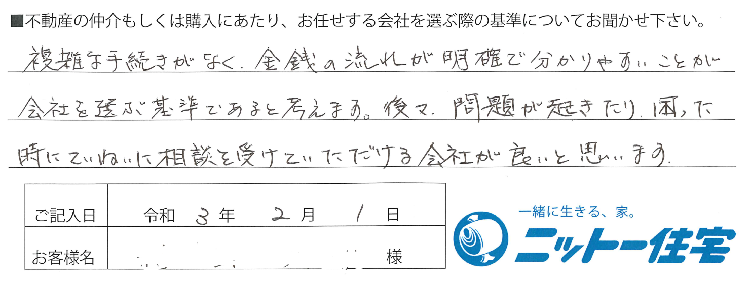 ■不動産の仲介もしくは購入にあたり、お任せする会社を選ぶ際の基準についてお聞かせ下さい。
複雑な手続きがなく、金銭の流れが明確で分かりやすいことが
会社を選ぶ基準であると考えます。後々、問題が起きたり、困った
時にていねいに相談を受けていただける会社が良いと思います。
ご記入日 令和 3 年 2 月 1 日
お客様名 様
一緒に生きる、家。
ニットー住宅